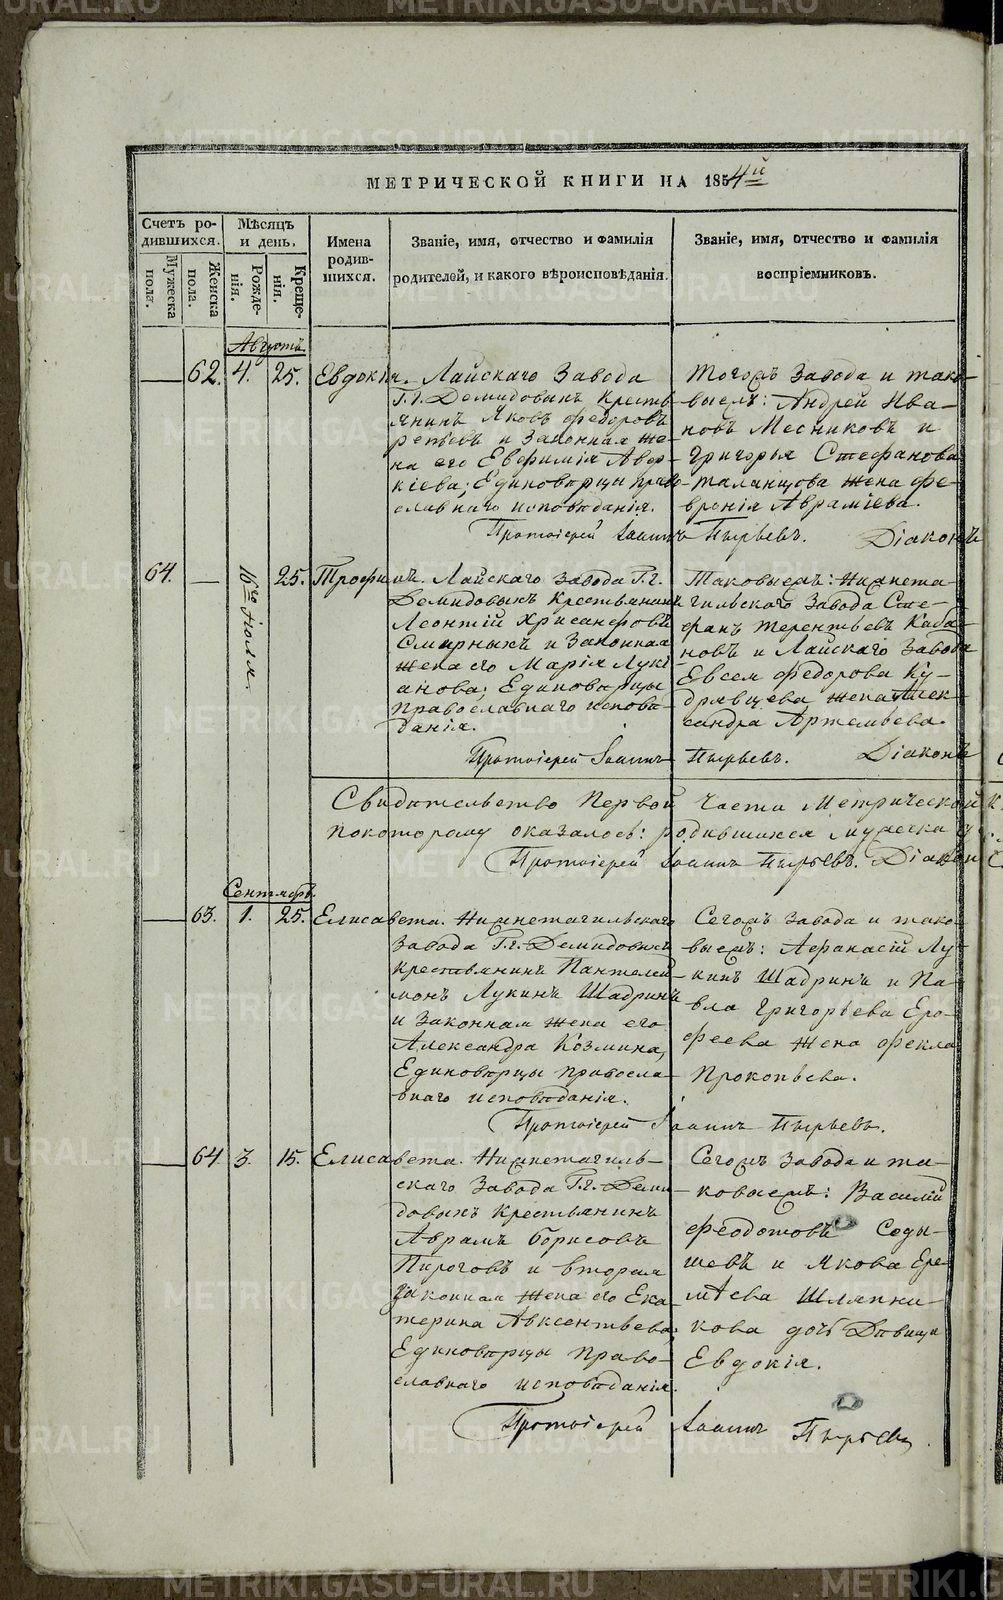 МЕТРИЧЕСКОЙ КНИГИ НА 1854й
Счетъ ро-
дившихся.
Мужеска
пола.
Женска
пола.
Мѣсяцъ
и день.
Рожде-
нія.
Креще-
нія.
Имена
родив-
шихся.
Званіе, имя, отчество и фамилія
родителей, и какого вѣроисповѣданія.
Званіе, имя, отчество и фамилія
воспріемниковъ.
Августъ.
62. 4. 25. Евдокія. Лайскаго Завода
Г.г. Демидовыхъ кресть-
янинъ Яковъ Федоровъ
и Законная же-
на его Евфимія Авер-
кіева; Единовѣрцы право-
славнаго исповѣданія.
Тогожъ Завода и тако-
выежъ: Андрей Ива-
новъ Месниковъ и
Григорья Стефанова
Таланцова жена Фе-
вронія Аврамиева.
Протоіерей Іоаннъ Пырьевъ. Діаконъ
64. 16го Іюля. 25. Трофимъ. Лайскаго завода Г.г.
Демидовыхъ крестьянинъ
Леонтій Хрисанфовъ
Смирныхъ и Законная
жена его Марія Луки-
анова; Единовѣрцы
православнаго исповѣ-
данія.
Таковыежъ: Нижнета-
гильскаго Завода Сте-
фанъ Терентьевъ Каба-
новъ и Лайскаго Завода
Евсея Федорова Ку-
дрявцева жена Алек-
сандра Артемьева.
Протоіерей Іоаннъ Пырьевъ. Діаконъ
Свидѣтельство Первой части Метрической
покоторому оказалось: родившихся мужеска
Протоіерей Іоаннъ Пырьевъ. Діаконъ
Сентябрь.
63. 1. 25. Елисавета. Нижнетагильскаго
Завода Г.г. Демидовыхъ
крестьянинъ Пантелей-
монъ Лукинъ Шадринъ
и Законная жена его
Александра Козмина,
Единовѣрцы правосла-
внаго исповѣданія.
Сегожъ завода и тако-
выежъ: Афанасій Лу-
кинъ Шадринъ и Па-
вла Григорьева Еро-
феева жена Фекла
Прокопьева.
Протоіерей Іоаннъ Пырьевъ.
64 3. 15. Елисавета. Нижнетагиль-
скаго Завода Г.г. Деми-
довыхъ крестьянинъ
Аврамъ Борисовъ
Пироговъ и вторая
законная жена его Ека-
терина Авксентьева;
Единовѣрцы право-
славнаго исповѣданія.
Сегожъ завода и та-
ковыежъ: Василій
Феодотовъ Седы-
шевъ и Якова Ере-
мѣева Шляпни-
кова дочь Дѣвица
Евдокія.
Протоіерей Іоаннъ Пырьевъ.
METRIKI.GASO-URAL.RU